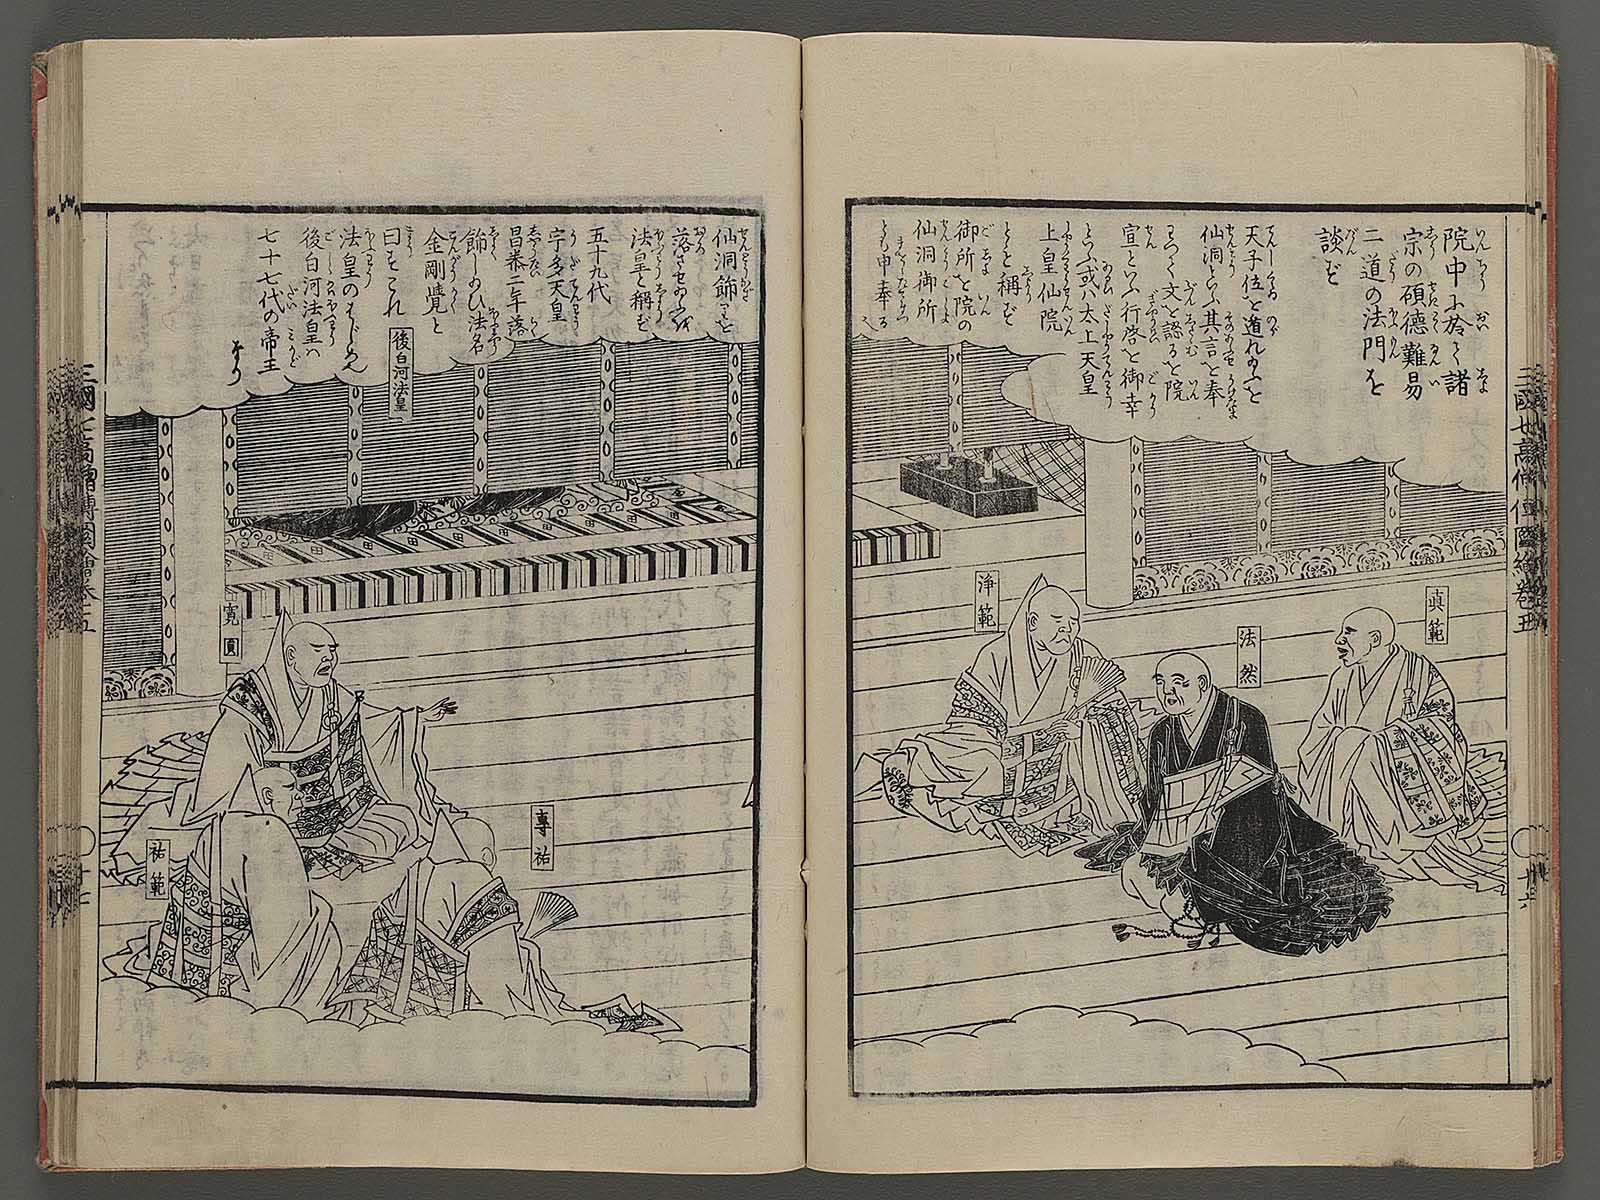 院中に於て諸
宗の碩徳難易
二道の法門を
談ず
天子位を遁れ給ふを
仙洞といふ其言を奉
りつぐ文を認るを院
宣といふ行啓を御幸
といふ或ハ太上天皇
上皇仙院
とも稱ず
御所を院の
仙洞御所
とも申奉る
真範
法然
浄範
三國七高僧傳圖繪巻五
仙洞飾りを
落させ給ふを
法皇と稱ず
五十九代
宇多天皇
昌泰二年落
飾し給ひ法名
金剛覺と
曰すこれ
法皇のはじめ
後白河法皇ハ
七十七代の帝王
なり
後白河法皇
寛圓
専祐
祐範
三國七高僧傳圖繪巻五